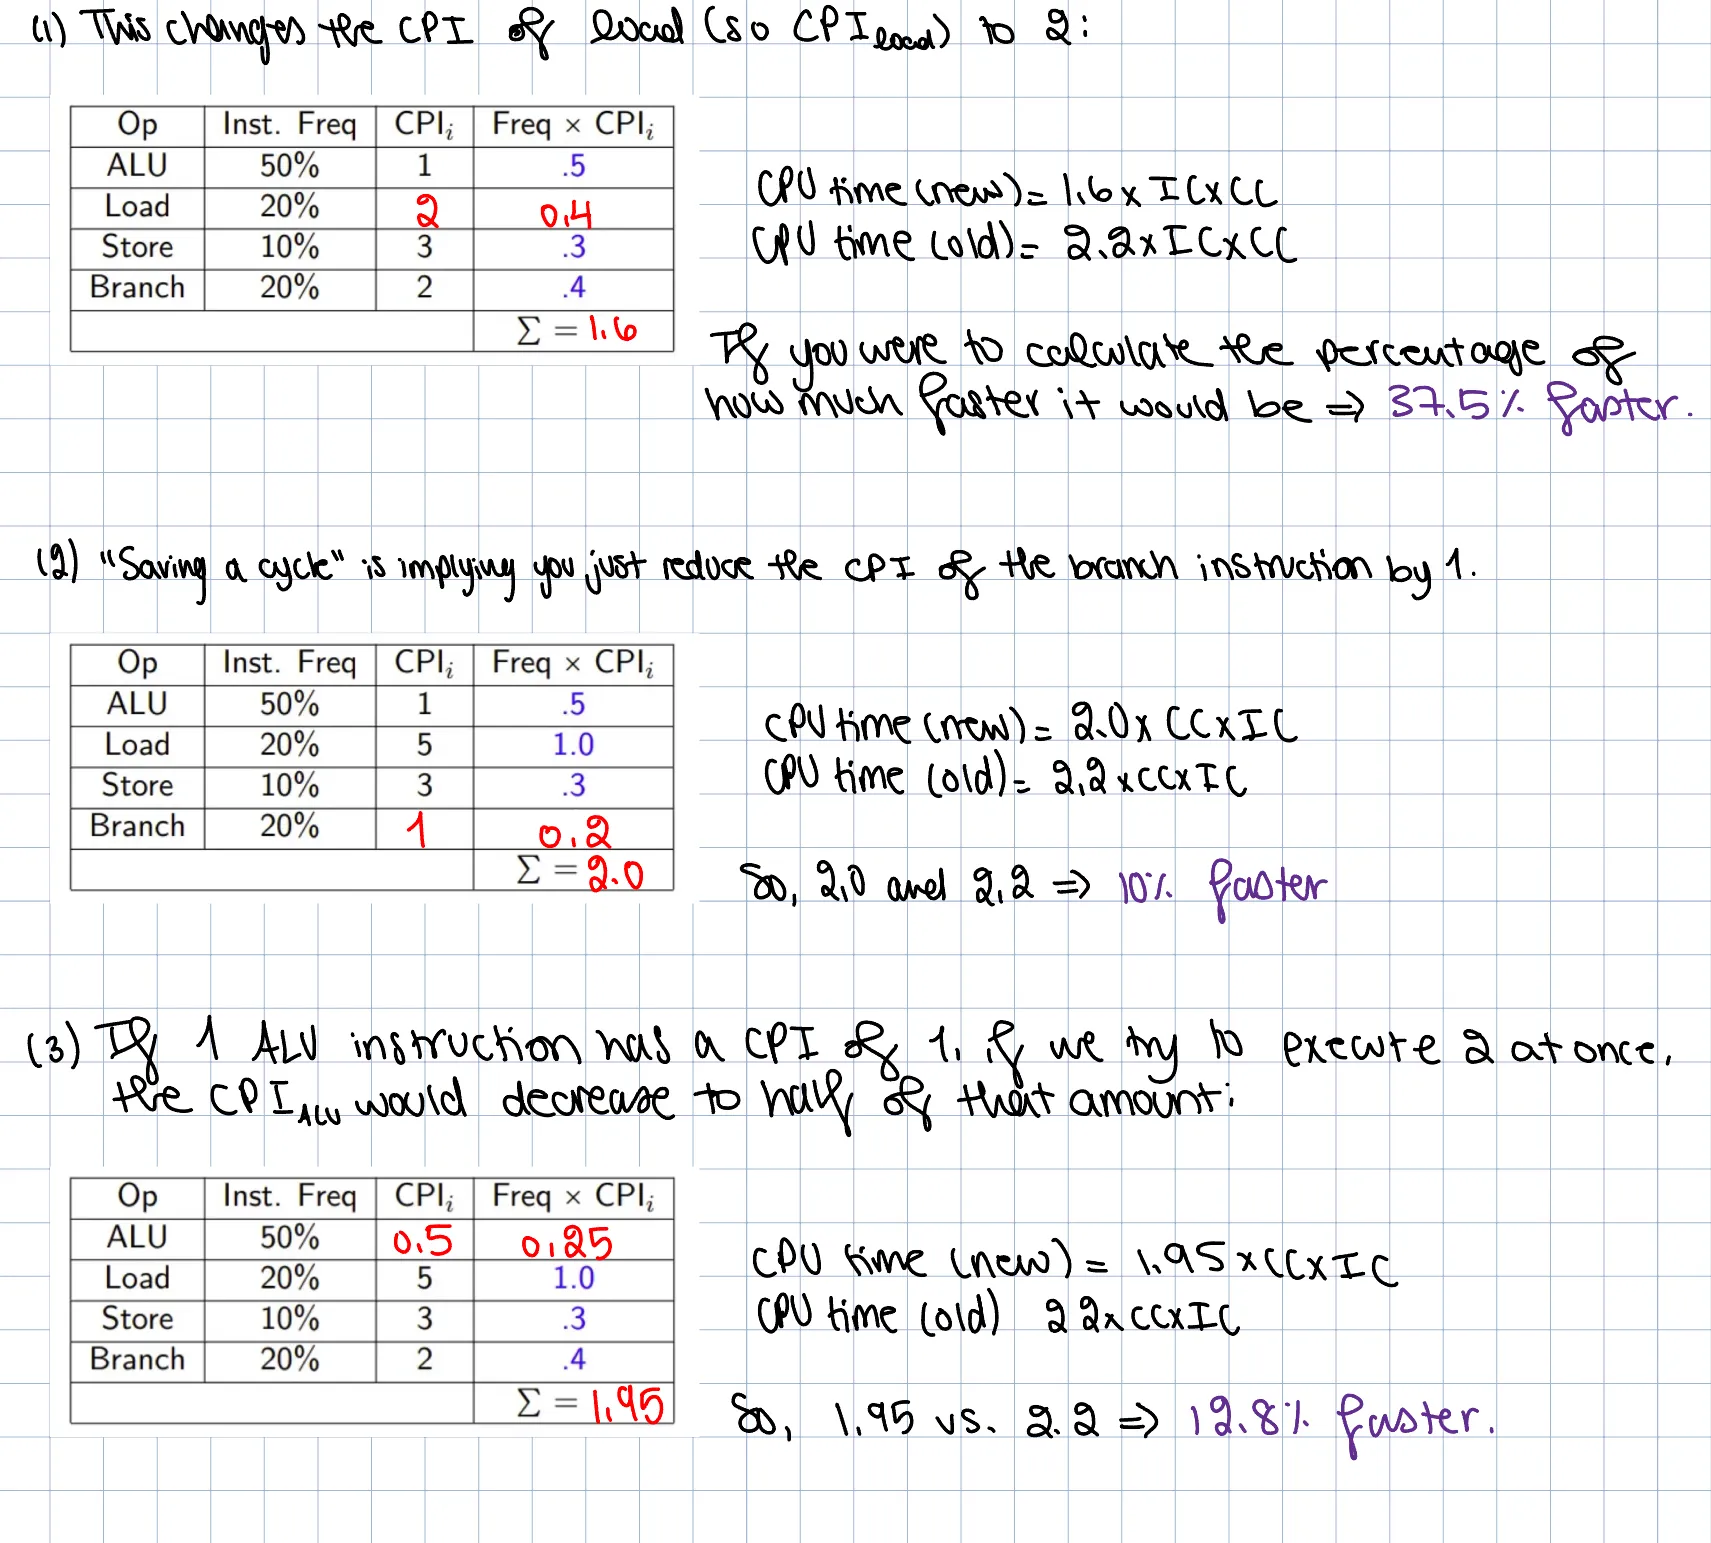 (1) This changes the CPI of load (so CPI load) to 2:
Op Inst. Freq CPIi Freq × CPIi
ALU 50% 1 .5
Load 20% 2 0.4
Store 10% 3 .3
Branch 20% 2 .4
Σ = 1.6
CPU time (new) = 1.6 x IC x CC
CPU time (old) = 2.2 x IC x CC
If you were to calculate the percentage of
how much faster it would be ⇒ 37.5% faster.
(2) "Saving a cycle" is implying you just reduce the CPI of the branch instruction by 1.
Op Inst. Freq CPIi Freq × CPIi
ALU 50% 1 .5
Load 20% 5 1.0
Store 10% 3 .3
Branch 20% 1 0.2
Σ = 2.0
CPU time (new) = 2.0 x CC x IC
CPU time (old) = 2.2 x CC x IC
So, 2.0 and 2.2 ⇒ 10% faster
(3) If 1 ALU instruction has a CPI of 1, if we try to execute 2 at once,
the CPI ALU would decrease to half of that amount:
Op Inst. Freq CPIi Freq × CPIi
ALU 50% 0.5 0.25
Load 20% 5 1.0
Store 10% 3 .3
Branch 20% 2 .4
Σ = 1.95
CPU time (new) = 1.95 x CC x IC
CPU time (old) 2 2 x CC x IC
So, 1.95 vs. 2.2 ⇒ 12.8% faster.